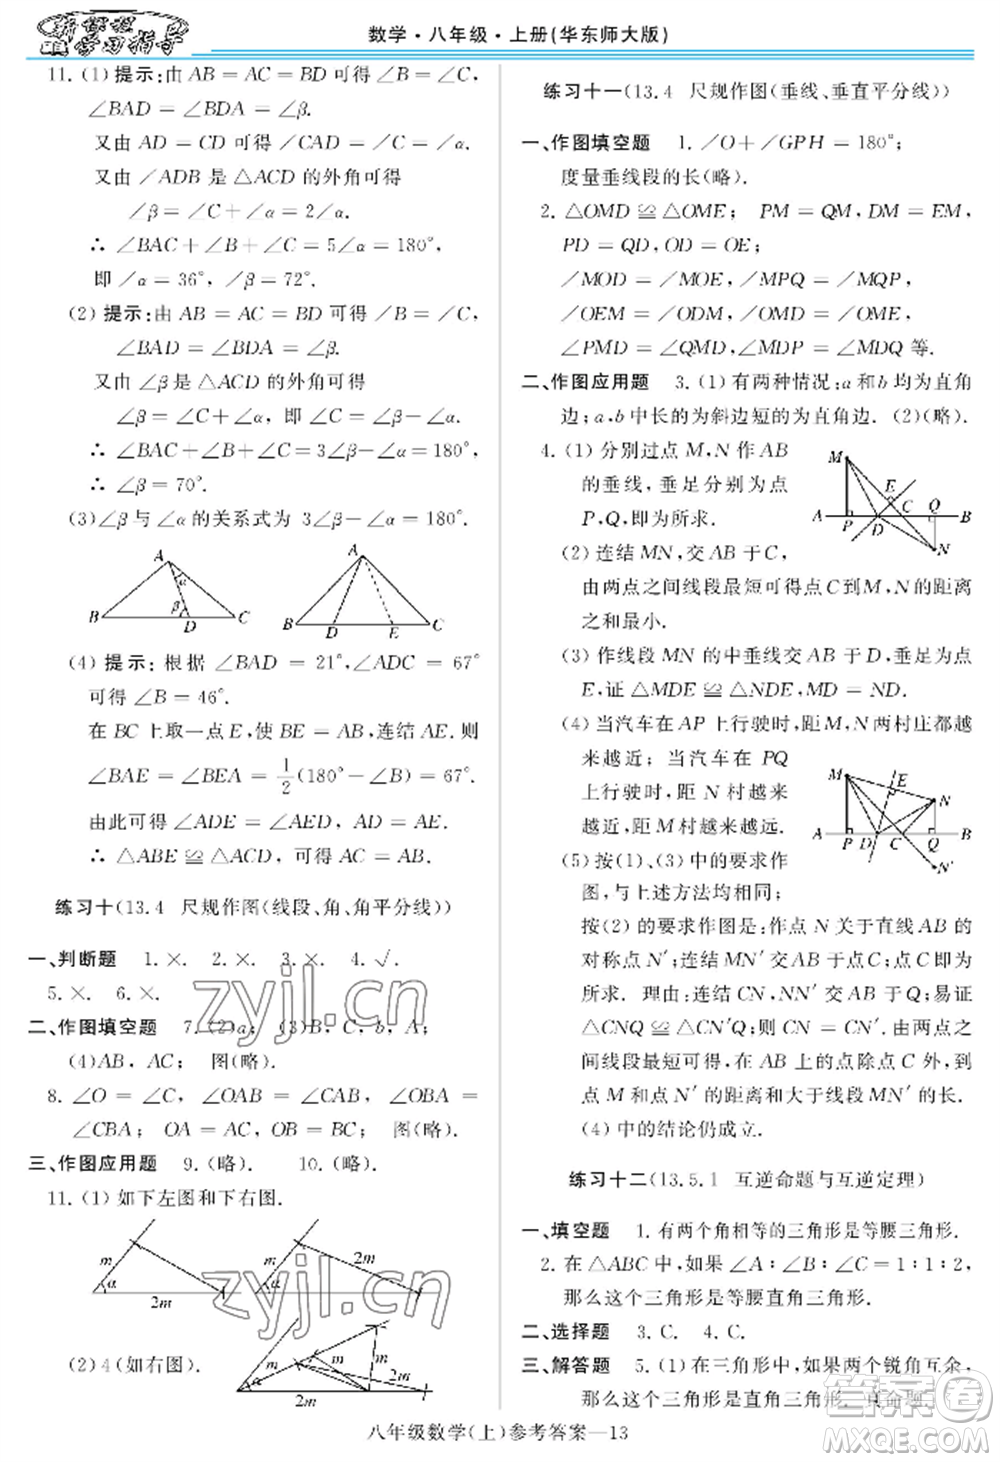 新课程
学习指导
数学·八年级·上册(华东师大版)
11. (1) 提示:由 AB = AC = BD 可得 ∠B = ∠C,
∠BAD = ∠BDA = ∠β.
又由 AD = CD 可得∠DAC = ∠C = ∠α.
又由 ∠ADB 是 △ACD 的外角可得
∠β = ∠C + ∠α = 2∠α.
∴ ∠BAC + ∠B + ∠C = 5∠α = 180°,
即 ∠α = 36°, ∠β = 72°.
(2) 提示:由 AB = AC = BD 可得 ∠B = ∠C,
∠BAD = ∠BDA = ∠β.
又由 ∠β 是 △ACD 的外角可得
∠β = ∠C + ∠α, 即 ∠C = ∠β − ∠α.
∴ ∠BAC + ∠B + ∠C = 3∠β − ∠α = 180°.
∴ ∠β = 70°.
(3) ∠β 与 ∠α 的关系式为 3∠β − ∠α = 180°.
A α β B D C
A B D E C
(4) 提示: 根据 ∠BAD = 21°, ∠ADC = 67°
可得 ∠B = 46°.
在 BC 上取一点 E, 使 BE = AB, 连结 AE. 则
∠BAE = ∠BEA = 1/2 (180° − ∠B) = 67°.
由此可得 ∠ADE = ∠AED, AD = AE.
∴ △ABE ≌ △ACD, 可得 AC = AB.
练习十(13.4 尺规作图(线段、角、角平分线))
一、判断题 1. ×. 2. ×. 3. ×. 4. √.
5. ×. 6. ×.
二、作图填空题 7. (2)a; (3)B, C, b, A;
(4)AB, AC; 图(略).
8. ∠O = ∠C, ∠OAB = ∠CAB, ∠OBA =
∠CBA; OA = AC, OB = BC; 图(略).
三、作图应用题 9. (略). 10. (略).
11. (1) 如下左图和下右图.
m α 2m
m α 2m
(2) 4 (如右图).
m m m 2m α 2m
练习十一(13.4 尺规作图(垂线、垂直平分线))
一、作图填空题 1. ∠O + ∠GPH = 180°;
度量垂线段的长(略).
2. △OMD ≌ △OME; PM = QM, DM = EM,
PD = QD, OD = OE;
∠MOD = ∠MOE, ∠MPQ = ∠MQP,
∠OEM = ∠ODM, ∠MDP = ∠MDQ,
∠PMD = ∠QMD, ∠MDP = ∠MDQ 等.
二、作图应用题 3. (1) 有两种情况: a 和 b 均为直角
边; a、b 中长的为斜边短的为直角边. (2)(略).
4. (1) 分别过点 M, N 作 AB
的垂线, 垂足分别为点
P, Q, 即为所求.
M E C Q A P D B N
(2) 连结 MN, 交 AB 于 C,
由两点之间线段最短可得点 C 到 M, N 的距离
之和最小.
(3) 作线段 MN 的中垂线交 AB 于 D, 垂足为点
E, 证 △MDE ≌ △NDE, MD = ND.
(4) 当汽车在 AP 上行驶时, 距 M, N 两村庄都越
来越近; 当汽车在 PQ
上行驶时, 距 N 村越来
越近, 距 M 村越来越远.
M E N A P D C Q B N′
(5) 按(1)、(3) 中的要求作
图, 与上述方法均相同;
按(2) 的要求作图: 作点 N 关于直线 AB 的对
称点 N′; 连结 MN′ 交 AB 于点 C, 则点 C 为
所求. 理由: 连结 CN, NN′ 交 AB 于 Q; 易证
△CNQ ≌ △CN′Q, 则 CN = CN′. 由两点之
间线段最短可得, 在 AB 上的点除点 C 外, 到
点 M 和点 N′ 的距离和大于线段 MN′ 的长.
(4) 中的结论仍成立.
练习十二(13.5.1 互逆命题与互逆定理)
一、填空题 1. 有两个角相等的三角形是等腰三角形.
2. 在 △ABC 中, 如果 ∠A : ∠B : ∠C = 1 : 1 : 2,
那么这个三角形是等腰直角三角形.
二、选择题 3. C. 4. C.
三、解答题 5. (1) 在三角形中, 如果两个锐角互余,
那么这个三角形是直角三角形. 真命题.
zyjl.cn
zyjl.cn
答案圈
MXQE.COM
八年级数学(上)参考答案—13